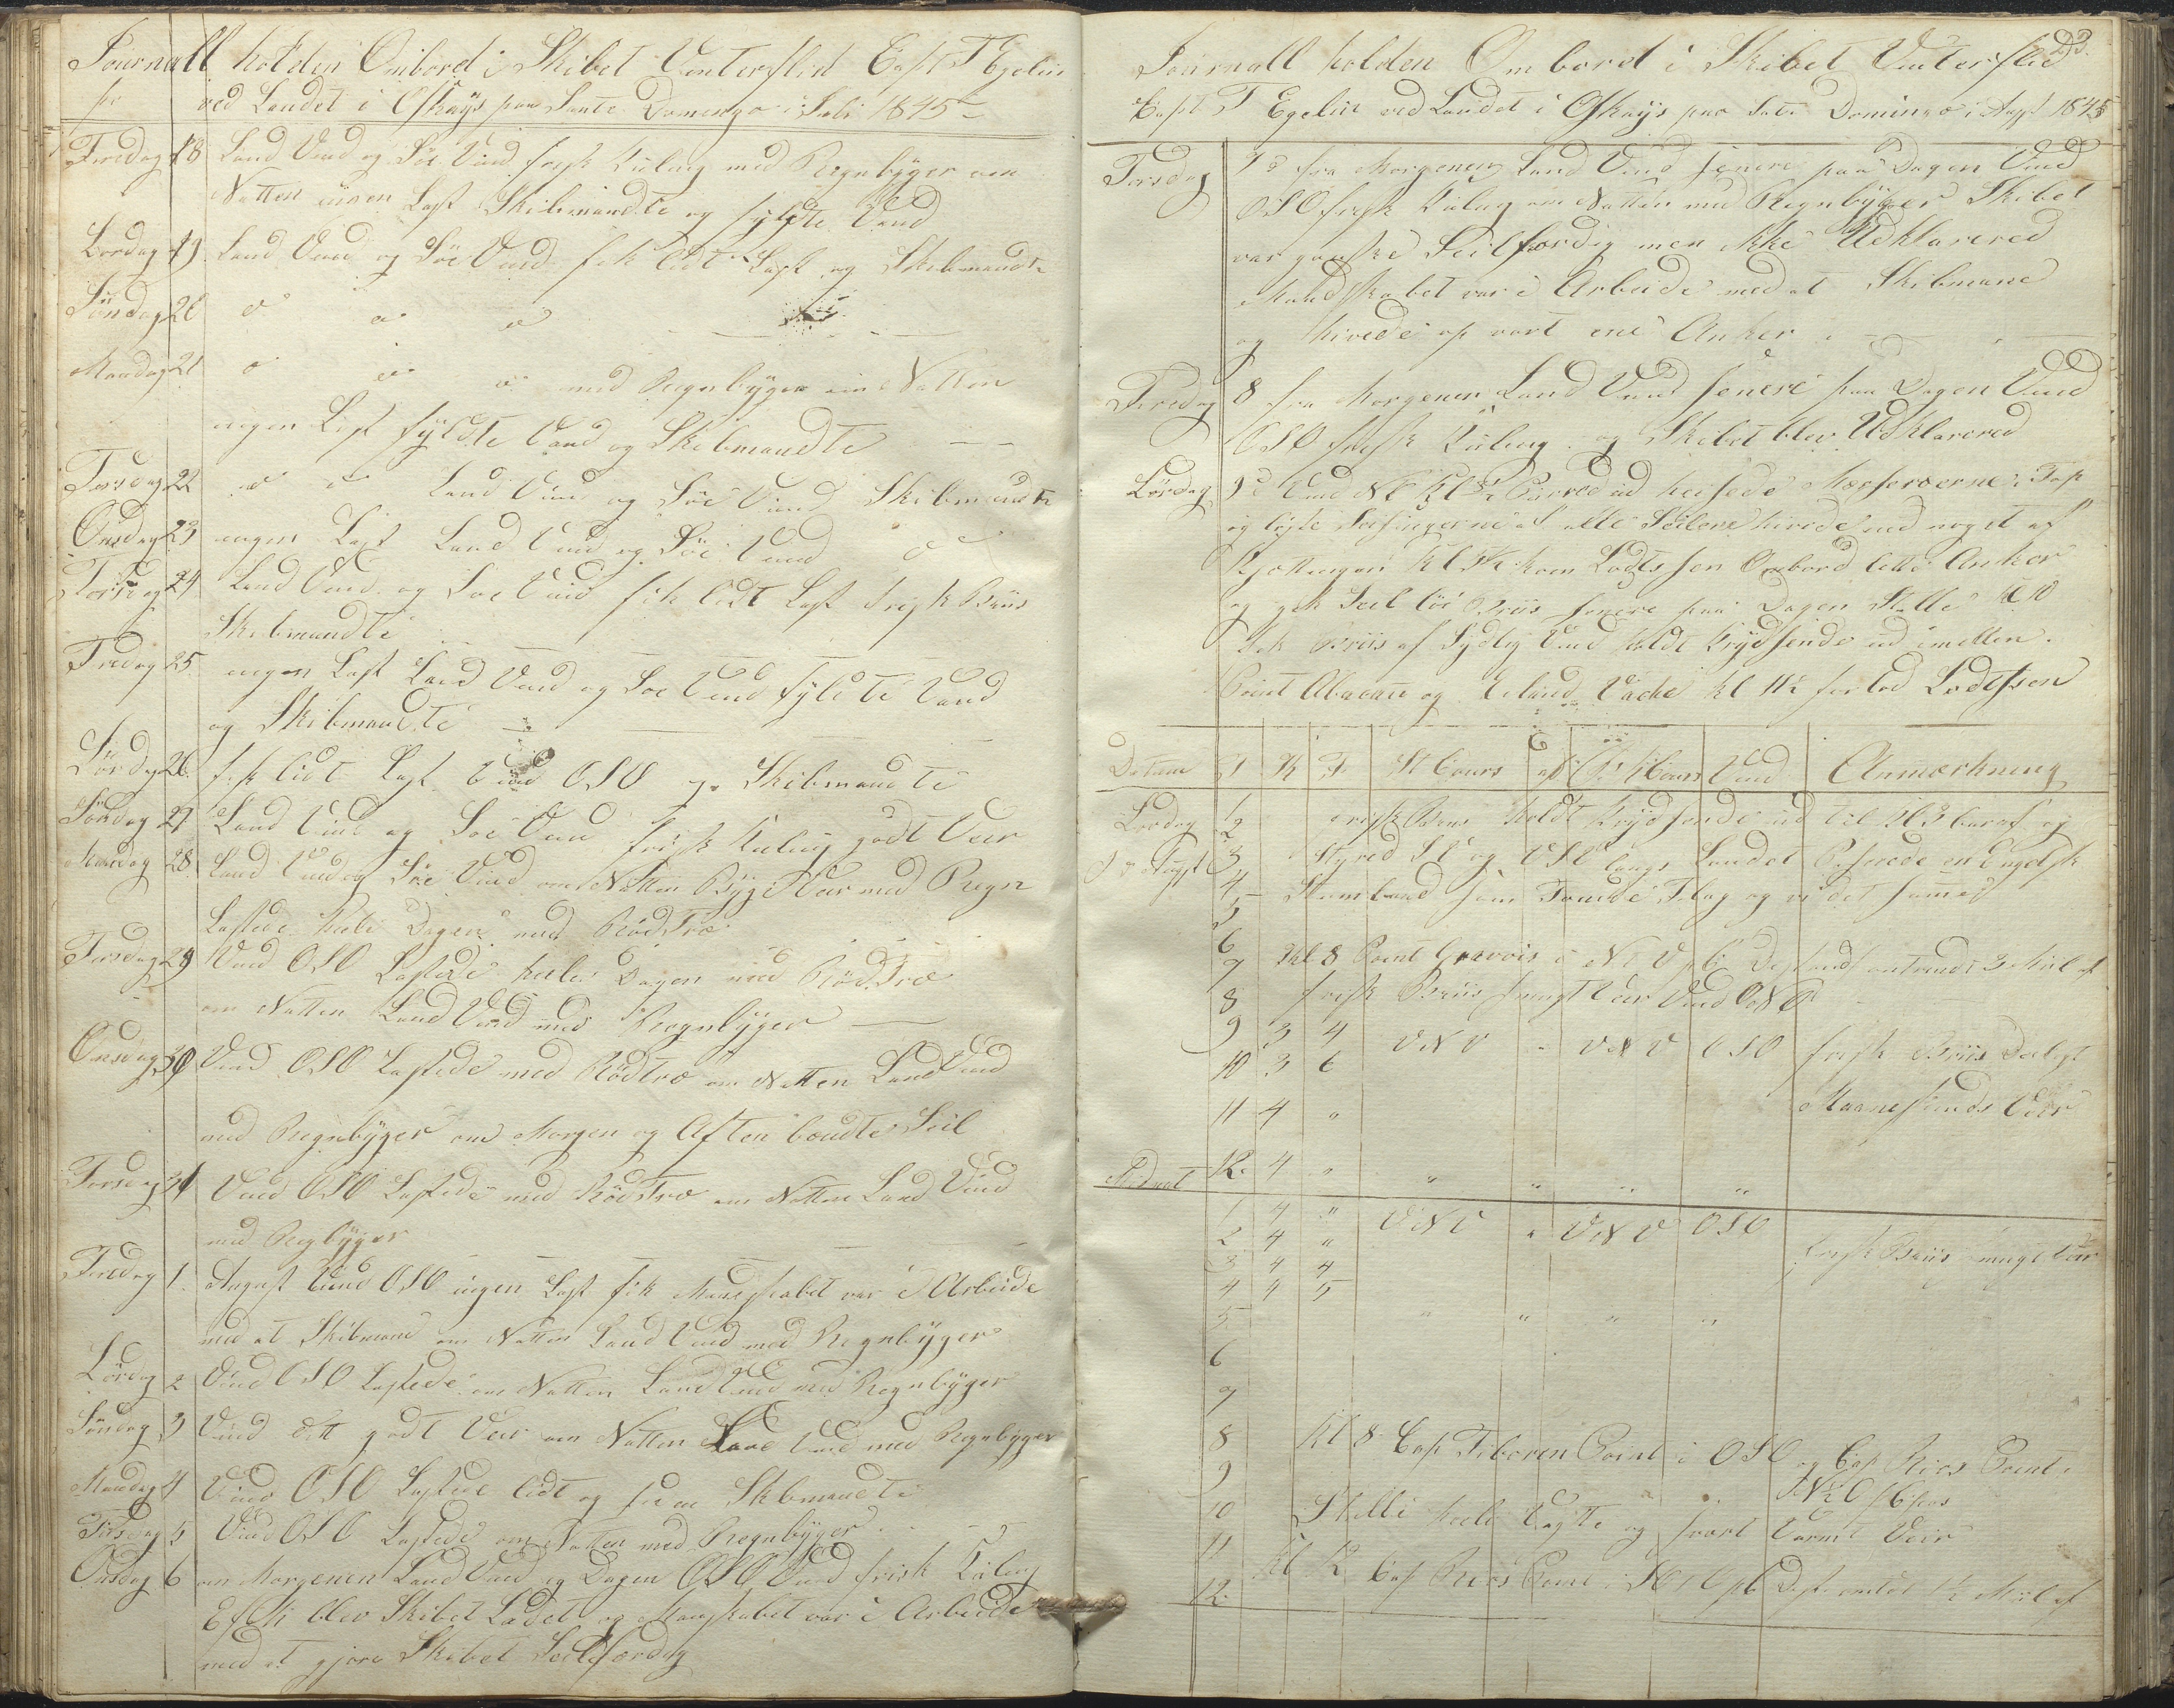 Journall holden Ombord i Skibet Vinterflid Capt T Egelin
ved Landet i Oskays paa Sante Domingo i Juli 1845
Fredag 18 Land Vind og Söe Vind frisk Kuling med Regnbyger om
Natten ingen Last Skibmandte og fyldte Vand
Lördag 19 Land Vind og Söe Vind fik lidt Last og Skibmandte
Söndag 20
Mandag 21 med Regnbyger om Natten
ingen Last fyldte Vand og Skibmandte
Tirsdag 22 Land Vind og Söe Vind Skibmandte
Onsdag 23 ingen Last Land Vind og Söe Vind
Torsdag 24 Land Vind og Söe Vind fik lidt Last frisk Briis
Skibmandte
Fredag 25 ingen Last Land Vind og Söe Vind fyldte Vand
og Skibmandte
Lördag 26 fik lidt Last Vind OSO og Skibmandte
Söndag 27 Land Vind og Söe Vind frisk Kuling godt Veir
Mandag 28 Land Vind og Söe Vind om Natten Byge Veir med Regn
Lastede hele Dagen med RödTræ
Tirsdag 29 Vind OSO Lastede heele Dagen med RödTræ
om Natten Land Vind med Regnbyger
Onsdag 30 Vind OSO Lastede med Rödtræ om Natten Land Vind
med Regnbyger om Morgen og Aften bændte Seil
Torsdag 31 Vind OSO Lastede med RödTræ om Natten Land Vind
med Regbyger
Fredag 1 August Vind OSO ingen Last fik Mandskabet var i Arbeide
med at Skibmane om Natten Land Vind med Regnbyger
Lördag 2 Vind OSO Lastede om Natten Land Vind med Regnbyger
Söndag 3 Vind ditt godt Veir om Natten Land Vind med Regnbyger
Mandag 4 Vind OSO Lastede lidt og Skibmandte
Tirsdag 5 Vind OSO Lastede om Natten med Regnbyger
Onsdag 6 om Morgenen Land Vind og Dagen OSO Vind frisk Kuling
blev Skibet Ladet og Manskabet var i Arbeide
med at gjöre Skibet Seilfærdig
23.
Journall holden Ombord i Skibet Vinterflid
Capt T Egelin ved Landet i Oskays paa Domingo i Augst 1845
Torsdag 7de fra Morgenen Land Vind senere paa Dagen Vind
OSO frisk Kuling om Natten med Regnbyger Skibet
var ganske Seilfærdig men ikke Udklarered
Mandskabet var i Arbeide med at Skibmane
og hivede op vort ene Anker
Fredag 8 fra Morgenen Land Vind senere paa Dagen Vind
OSO frisk Kuling og Skibet blev Udklarered
Lördag 9de Vind NO ud heisede Mærseraerne i Top
og löste Seisingerne af alle Seilene hivede ind noget af
Kjættingen Kl kom Lodtssen Ombord lette Anker
og gik Seil Briis senere paa Dagen Stille Kl 10
Fik Briis af Sydlig Vind holdt Krydsende ud imellem
Point Abacau og Eiland Vache kl 11½ forlod Lodtssen
Datum T K F St Cours Cours Vind Anmærkning
Lördag 1 frisk Briis holdt Krydsende ud til Kl 3 og
2
9de Augst 3 Styred og VSV langs Landet Passerede en Engelsk
4 Stambaad som Flag og vi det samme
5
6
7 Kl 8 Point Gravois i Distands omtrendt 3 Miil af
8 frisk Briis smugt Veir Vind ONO
9 3 4 VNV " VNV OSO frisk Briis Deiligt
10 3 6
11 4 " Maaneskinds Veir
Midnat 12 4 " " " " "
1 4 " VNV " VNV OSO
2 4 " frisk Briis smugt Veir
3 4 4
4 4 5
5 " " " "
6
7
8 Kl 8 Cap Tiboron Point i OSO og Cap Rios Point i
9
10 Stille heele Vagten og svært Varmt Veir
11
12 Kl 12 Cap Rios Point i Dist omtrdt 1½ Miil af